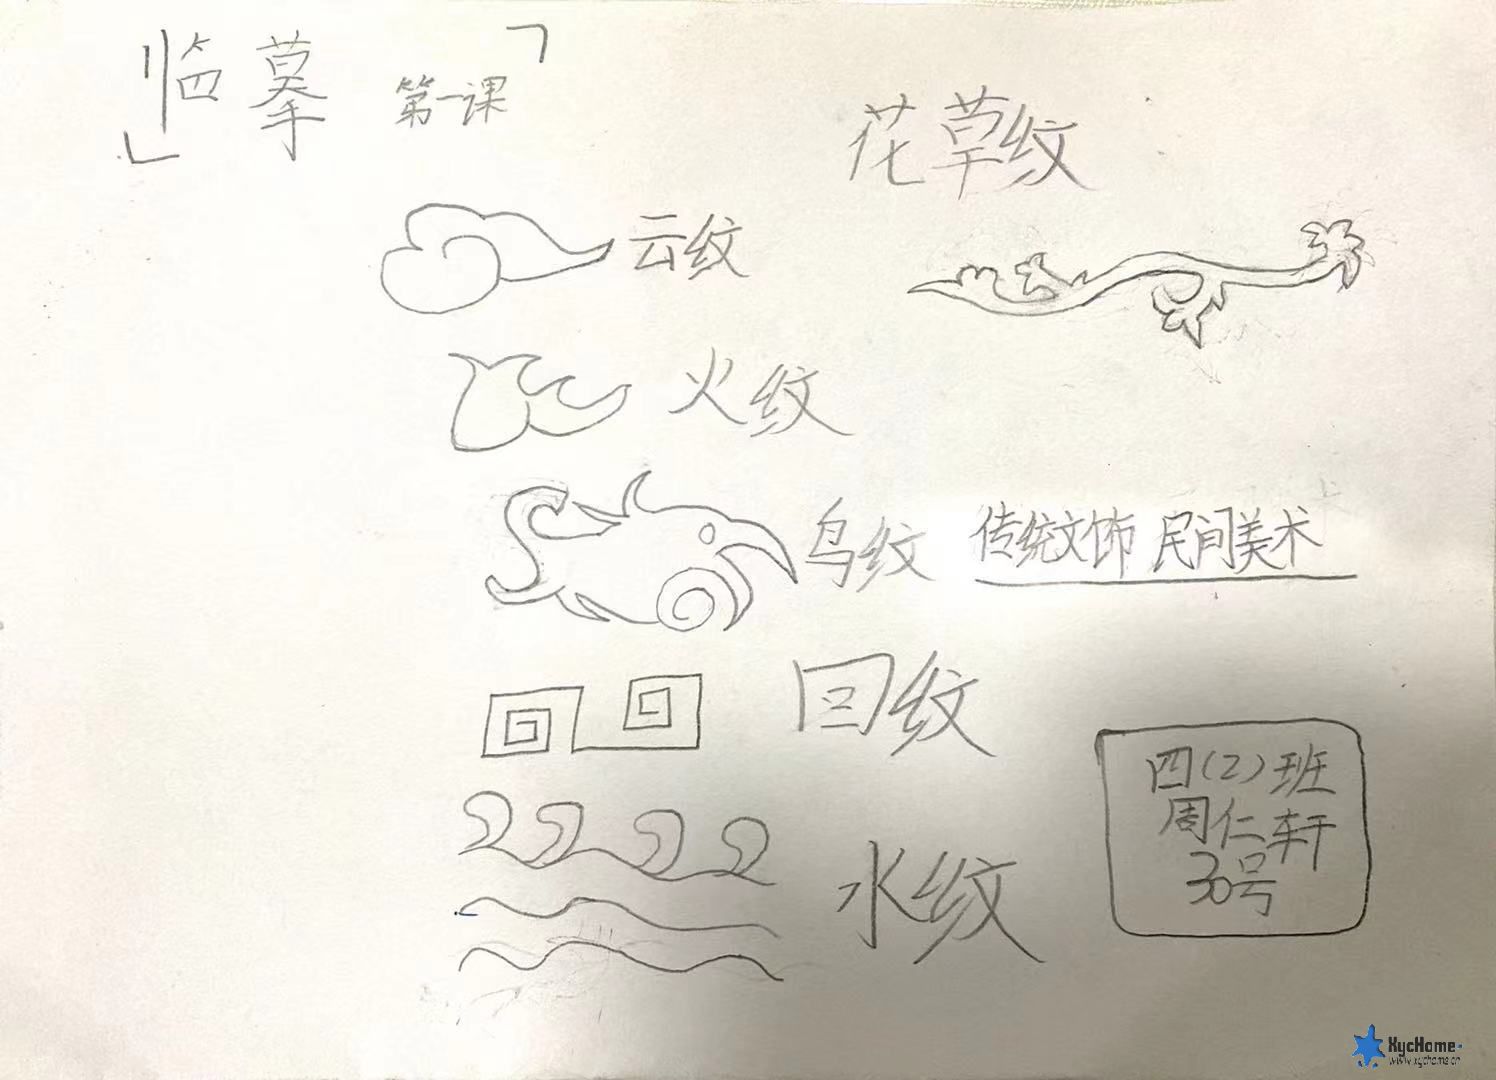 临摹 第一课
花草纹
云纹
火纹
鸟纹
传统文饰 民间美术
回纹
四(2)班
周仁轩
30号
水纹
XycHome
www.xychome.cn